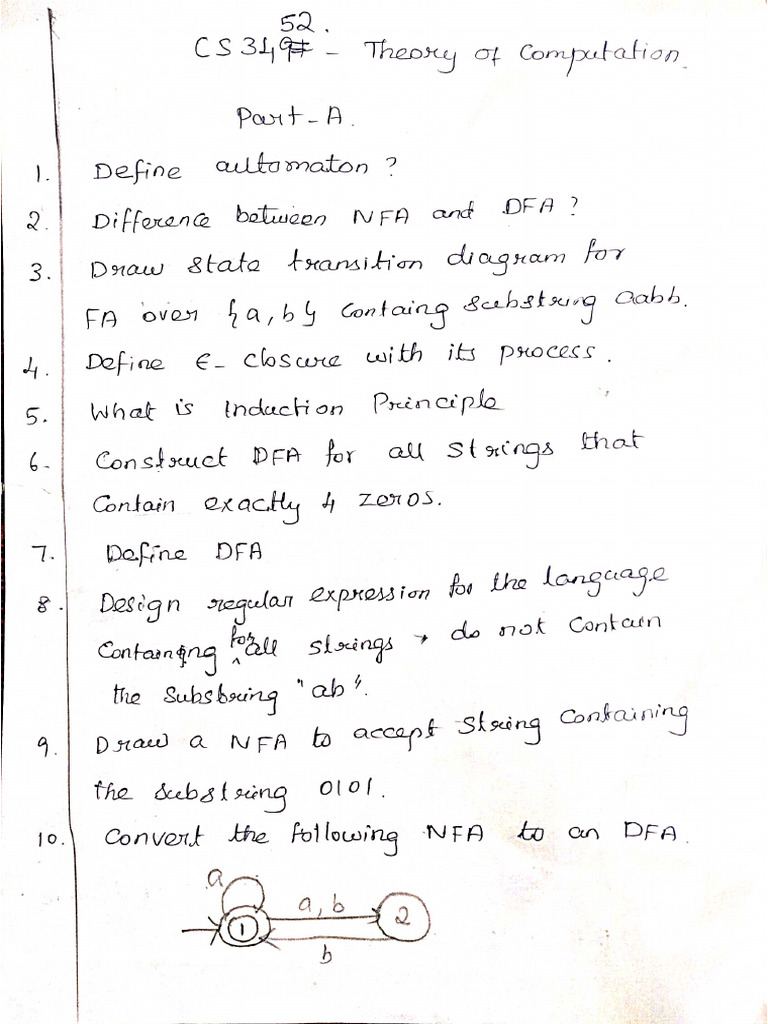 52.
CS34 - Theory of Computation
Part-A.
1. Define automaton?
2. Difference between NFA and DFA?
3. Draw state transition diagram for
FA over {a,b} containg substring aabb.
4. Define ε-closure with its process.
5. What is Induction Principle
6- Construct DFA for all strings that
Contain exactly 4 zeros.
7. Define DFA
8. Design regular expression for the language
Containing for all strings do not Contain
the substring "ab".
9. Draw a NFA to accept String Containing
the substring 0101.
10. Convert the following NFA to an DFA.
a
a,b
1 2
b